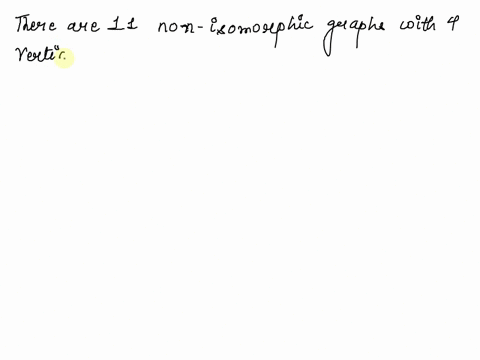 There are 11 non-isomorphic graphs with 4
Verti